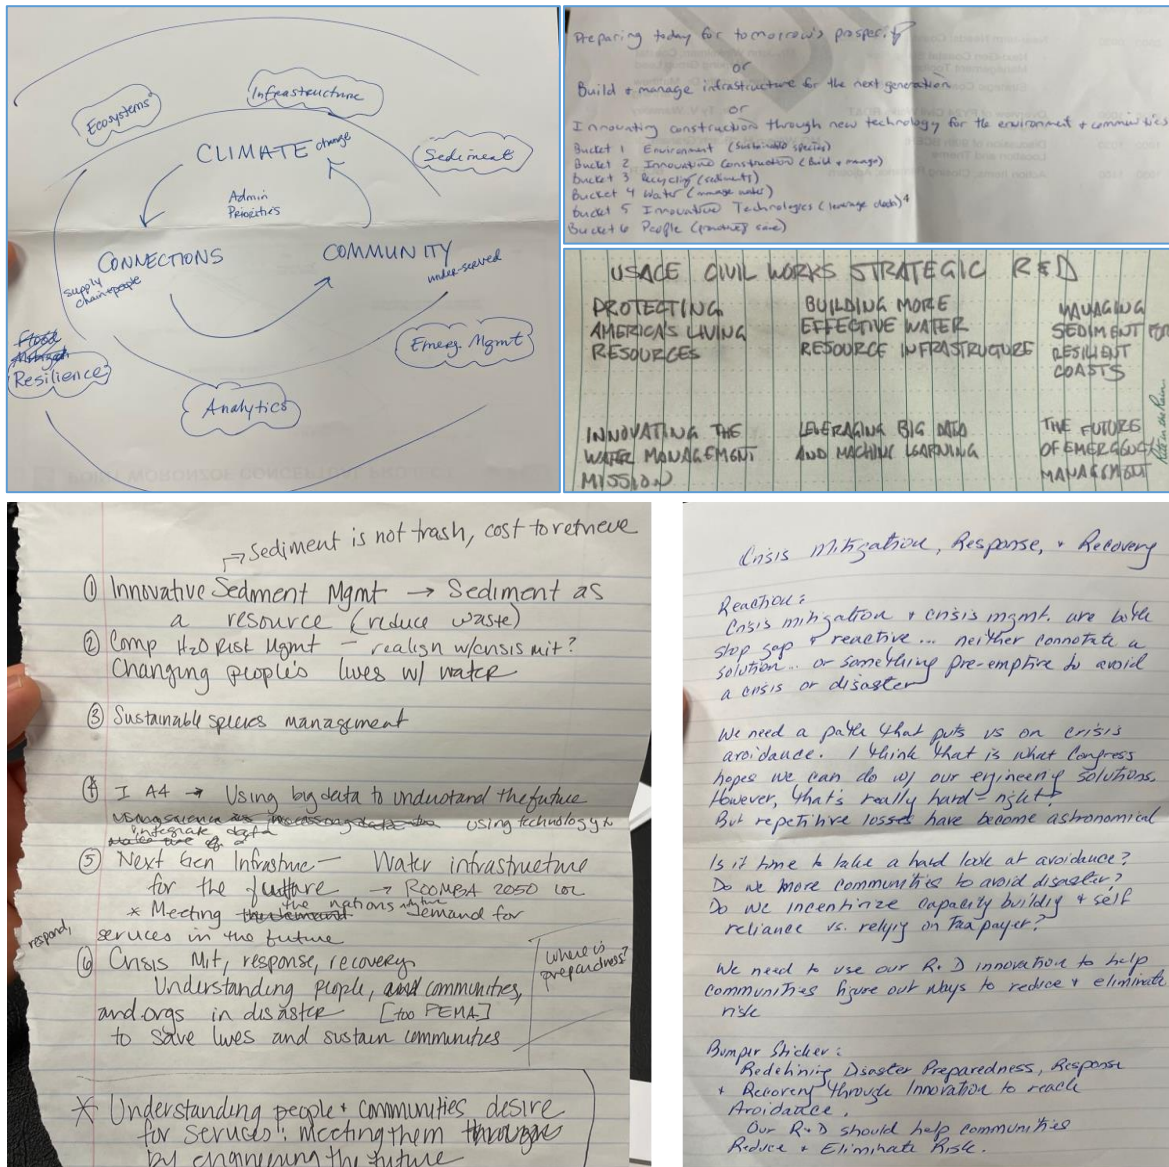 Infrastructure
Ecosystems
Sediment
CLIMATE change
Admin
Priorities
CONNECTIONS
supply
chain+people
COMMUNITY
under-served
Flood
Resilience
Emerg. Mgmt
Analytics
Preparing today for tomorrow's prosperity
or
Build + manage infrastructure for the next generation
or
Innovating construction through new technology for the environment + communities
Bucket 1 Environment (Sustainable species)
Bucket 2 Innovative Construction (Build + manage)
Bucket 3 Recycling (sediments)
Bucket 4 Water (manage water)
Bucket 5 Innovative Technologies (leverage data)
Bucket 6 People
USACE CIVIL WORKS STRATEGIC R&D
PROTECTING
AMERICA'S LIVING
RESOURCES
BUILDING MORE
EFFECTIVE WATER
RESOURCE INFRASTRUCTURE
MANAGING
SEDIMENT FOR
RESILIENT
COASTS
INNOVATING THE
WATER MANAGEMENT
MISSION
LEVERAGING BIG DATA
AND MACHINE LEARNING
THE FUTURE
OF EMERGENCY
MANAGEMENT
Rite in the Rain
→ Sediment is not trash, cost to retrieve
① Innovative Sediment Mgmt → Sediment as
a resource (reduce waste)
② Comp H2O Risk Mgmt – realign w/crisis mit?
Changing people's lives w/ water
③ Sustainable species management
④ I A4 → Using big data to understand the future
using technology +
integrate data
⑤ Next Gen Infrastruc – Water infrastructure
for the future → ROOMBA 2050 LOL
* Meeting the demand the nations demand for
services in the future
respond,
⑥ Crisis Mit, response, recovery
Understanding people, and communities,
and orgs in disaster [too FEMA]
to save lives and sustain communities
where is
preparedness?
* Understanding people + communities desire
for services: meeting them through
by engineering the future
Crisis Mitigation, Response, + Recovery
Reaction:
Crisis mitigation + crisis mgmt. are both
stop gap + reactive... neither connotate a
solution... or something pre-emptive to avoid
a crisis or disaster
We need a path that puts us on crisis
avoidance. I think that is what Congress
hopes we can do w/ our engineering solutions.
However, that's really hard – right?
But repetitive losses have become astronomical
Is it time to take a hard look at avoidance?
Do we move communities to avoid disaster?
Do we incentivize capacity building + self
reliance vs. relying on Taxpayer?
We need to use our R+D innovation to help
communities figure out ways to reduce + eliminate
risk
Bumper Sticker:
Redefining Disaster Preparedness, Response
+ Recovery through Innovation to reach
Avoidance.
Our R+D should help communities
Reduce + Eliminate Risk.